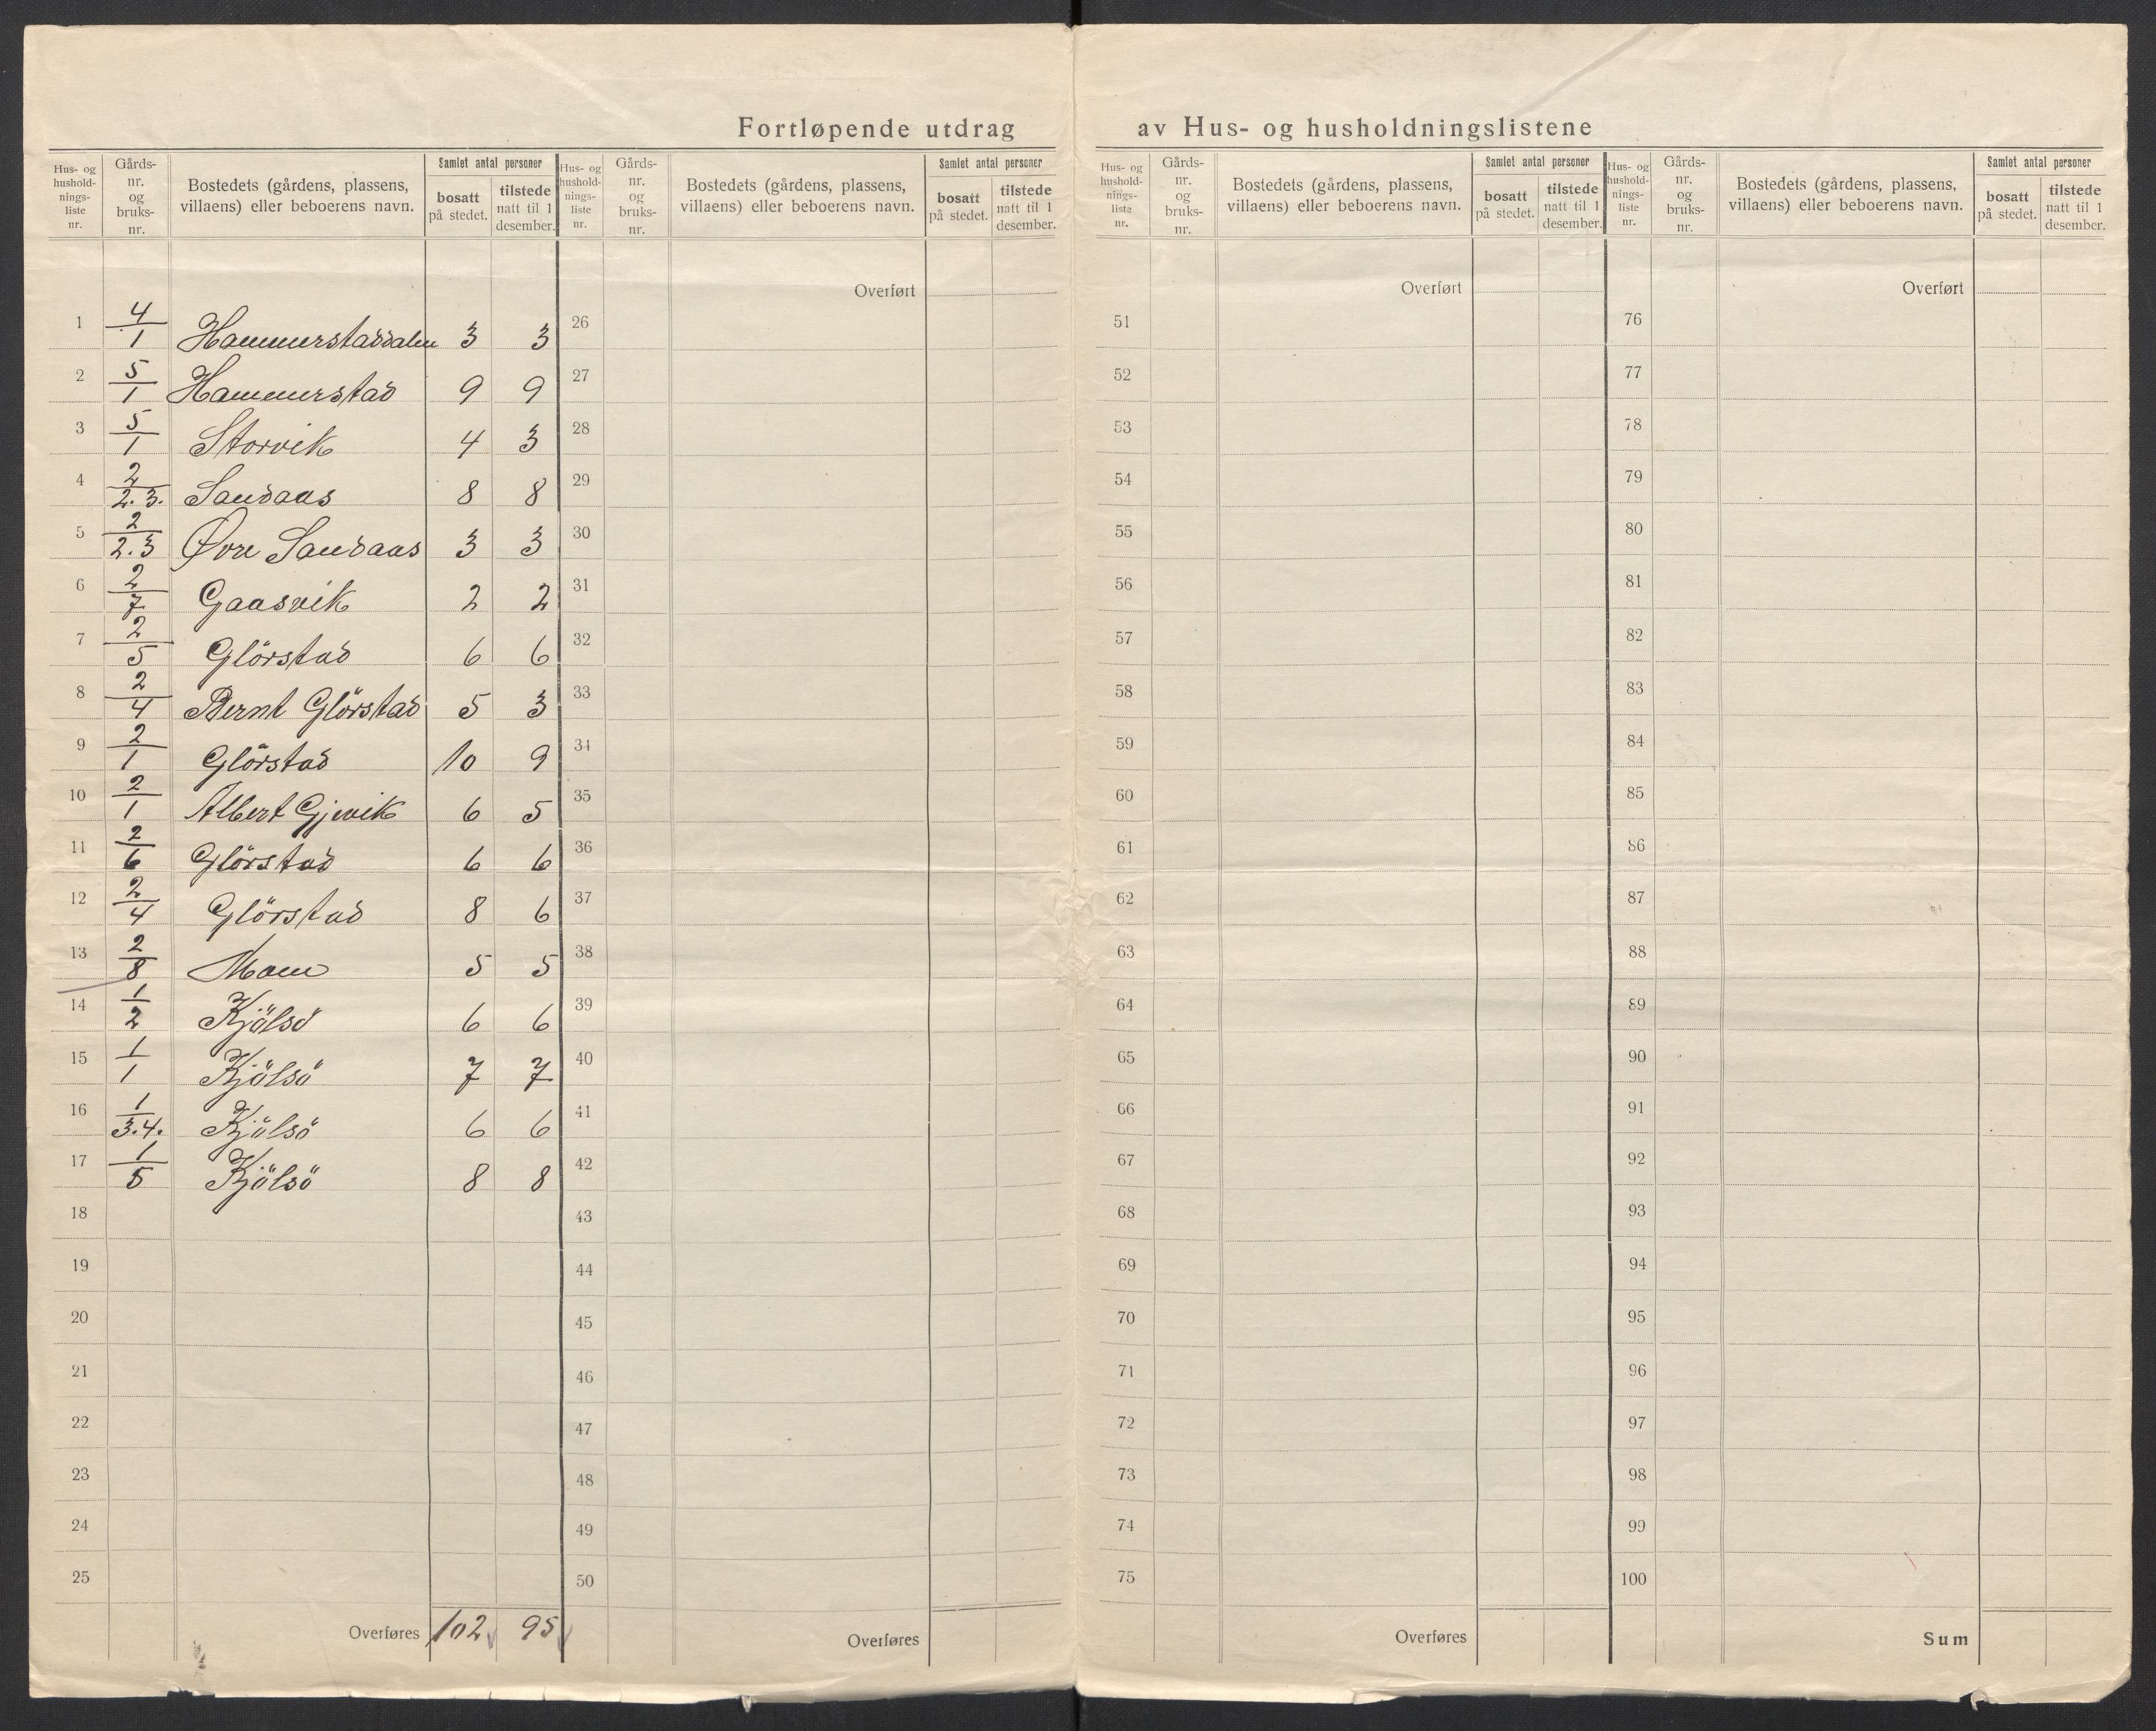 Fortløpende utdrag av Hus- og husholdningslistene
Hus- og husholdnings-liste nr. Gårds-nr. og bruks-nr. Bostedets (gårdens, plassens, villaens) eller beboerens navn. Samlet antal personer bosatt på stedet. tilstede natt til 1 desember.
Hus- og husholdnings-liste nr. Gårds-nr. og bruks-nr. Bostedets (gårdens, plassens, villaens) eller beboerens navn. Samlet antal personer bosatt på stedet. tilstede natt til 1 desember.
Hus- og husholdnings-liste nr. Gårds-nr. og bruks-nr. Bostedets (gårdens, plassens, villaens) eller beboerens navn. Samlet antal personer bosatt på stedet. tilstede natt til 1 desember.
Hus- og husholdnings-liste nr. Gårds-nr. og bruks-nr. Bostedets (gårdens, plassens, villaens) eller beboerens navn. Samlet antal personer bosatt på stedet. tilstede natt til 1 desember.
Overført Overført Overført
1 4/1 Hammerstaddalen 3 3 26 51 76
2 5/1 Hammerstad 9 9 27 52 77
3 5/1 Storvik 4 3 28 53 78
4 2/2.3. Sandaas 8 8 29 54 79
5 2/2.3 Øvre Sandaas 3 3 30 55 80
6 2/7 Gaasvik 2 2 31 56 81
7 2/5 Glörstad 6 6 32 57 82
8 2/4 Bernt Glörstad 5 3 33 58 83
9 2/1 Glörstad 10 9 34 59 84
10 2/1 Albert Gjevik 6 5 35 60 85
11 2/6 Glörstad 6 6 36 61 86
12 2/4 Glörstad 8 6 37 62 87
13 2/8 Moen 5 5 38 63 88
14 1/2 Kjölsö 6 6 39 64 89
15 1/1 Kjölsö 7 7 40 65 90
16 1/3.4. Kjölsö 6 6 41 66 91
17 1/5 Kjölsö 8 8 42 67 92
18 43 68 93
19 44 69 94
20 45 70 95
21 46 71 96
22 47 72 97
23 48 73 98
24 49 74 99
25 50 75 100
Overføres 102 95 Overføres Overføres Sum